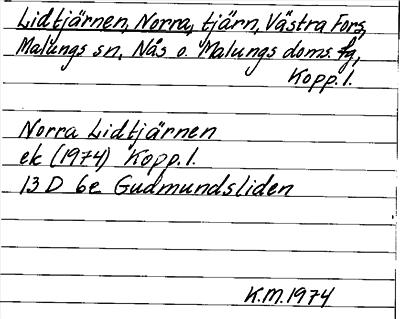 Lidtjärnen, Norra, tjärn, Västra Fors,
Malungs sn, Nås o. Malungs doms. fg,
Kopp. l.
Norra Lidtjärnen
ek (1974) Kopp. l.
13 D 6e Gudmundsliden
K.M. 1974